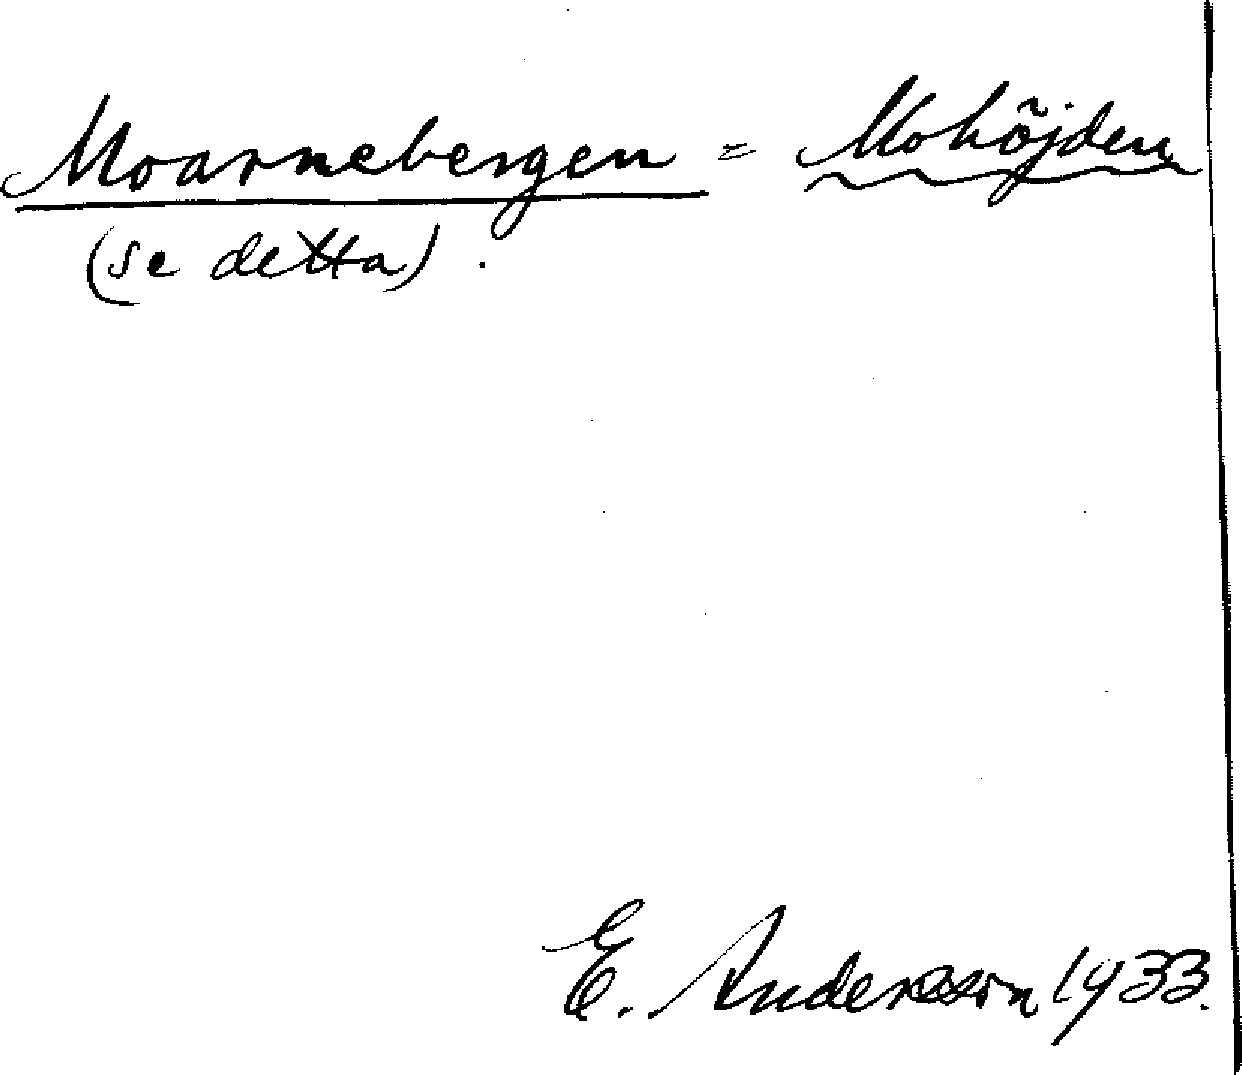 Moarnebergen = Mohöjden
(se detta).
E. Andersson 1933.